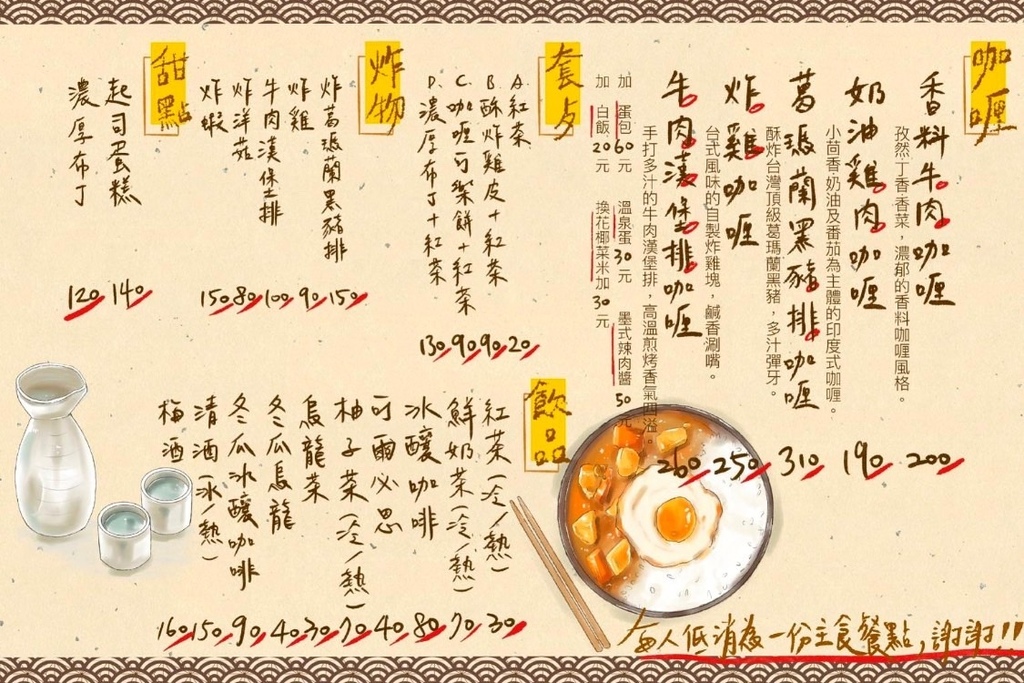 咖哩
香料牛肉咖哩
孜然丁香香菜，濃郁的香料咖哩風格。
200
奶油雞肉咖哩
小茴香奶油及番茄為主體的印度式咖哩。
190
葛瑪蘭黑豬排咖哩
酥炸台灣頂級葛瑪蘭黑豬，多汁彈牙。
310
炸雞咖哩
台式風味的自製炸雞塊，鹹香涮嘴。
250
牛肉漢堡排咖哩
手打多汁的牛肉漢堡排，高溫煎烤香氣四溢。
260
加 蛋包60元 溫泉蛋30元 墨式辣肉醬50元
加 白飯20元 換花椰菜米加30元
套點
A.紅茶
20
B.酥炸雞皮+紅茶
90
C.咖哩可樂餅+紅茶
90
D.濃厚布丁+紅茶
130
炸物
炸葛瑪蘭黑豬排
150
炸雞
90
牛肉漢堡排
100
炸洋菇
80
炸蝦
150
甜點
起司蛋糕
140
濃厚布丁
120
飲品
紅茶(冷/熱)
30
鮮奶茶(冷/熱)
70
冰釀咖啡
80
可爾必思
40
柚子茶(冷/熱)
70
烏龍茶
30
冬瓜烏龍
40
冬瓜冰釀咖啡
90
清酒(冰/熱)
150
梅酒
160
每人低消為一份主食餐點,謝謝!!